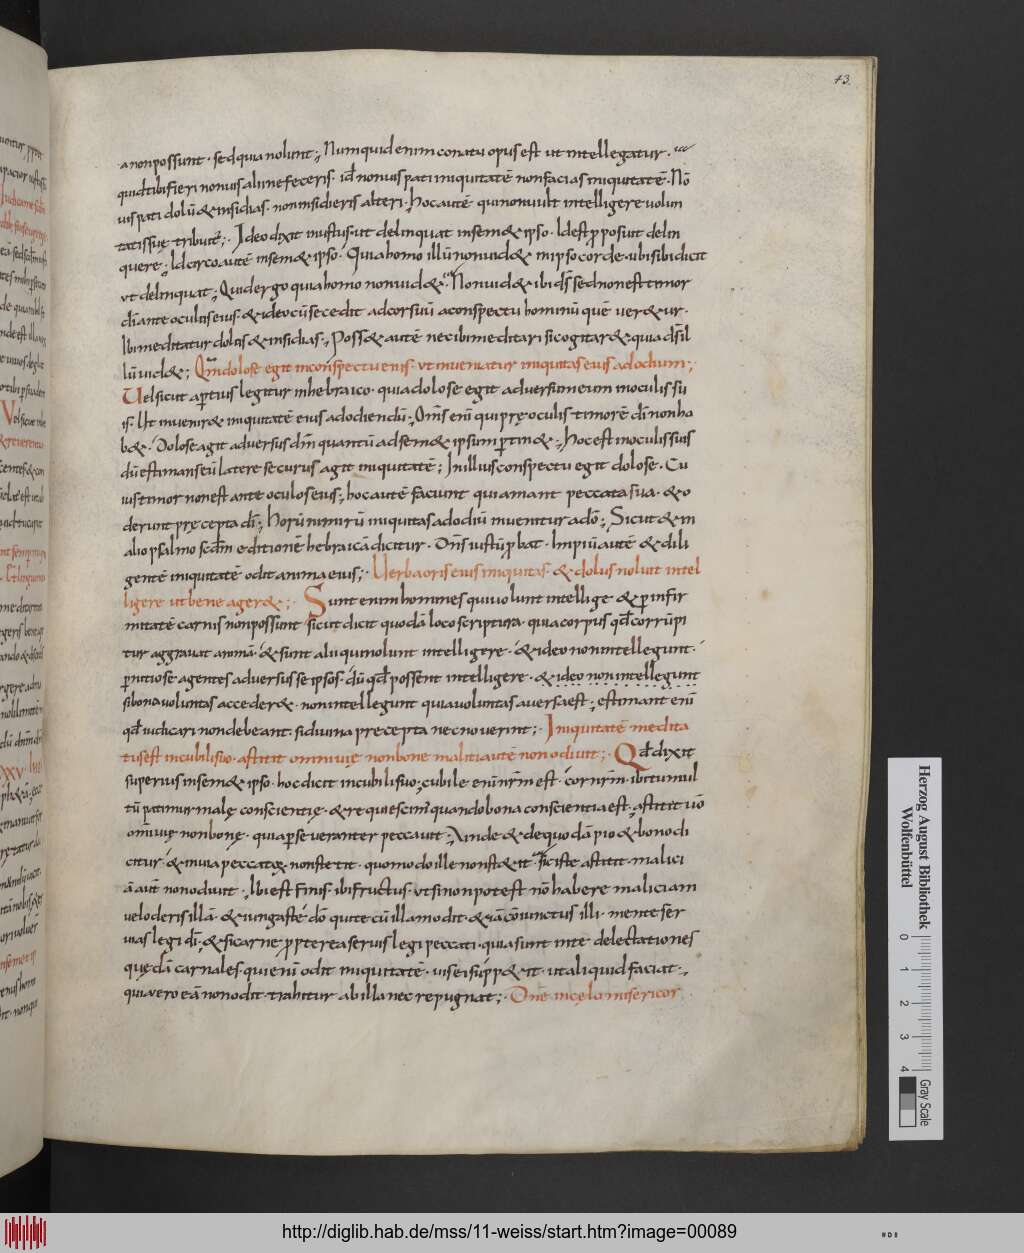 43
a non possunt · sed qua nolunt ; Numquid enim conatu opus est ut intellegatur ·
quid tibi fieri non uis alii ne feceris · id non uis pati iniquitatē non facias iniquitatē · Nō
uis pati dolū & insidias · non insidieris alteri · hoc autē qui non uult intelligere uolun
tati suę tribuit ; · Ideo dixit iniustus · ut delinquat in sem& ipso · Id est proposuit delin
quere ; Idcirco autē in sem& ipso · Quia homo illū non uid& in ipso corde · ubi sibi dicit
ut delinquat ; Quid ergo quia homo non uid& · Non uid& ibi dš sed non est timor
di ante oculos eius · & ideo cū secedit ad corsuū a conspectu hominū quē uer&ur ·
Ibi meditatur dolos & insidias ; Poss& autē nec ibi meditari si cogitar& quia dš il
lū uid& ; Qm̄ dolose egit in conspectu eius · ut inueniatur iniquitas eius ad odium ;
Uel sicut apertius legitur in hebraico · quia dolose egit aduersum eum in oculis sui
is · Ut inuenir& iniquitatē eius ad odiendū ; Om̄s enī qui prę oculis timorē dī non ha
b& · Dolose agit aduersus dm̄ quantū ad sem& ipsum pertin& ; Hoc est in oculis suis
dū estimans eū latere securus agit iniquitatē ; In illius conspectu egit dolose · Cu
ius timor non est ante oculos eius ; hoc autē faciunt qui amant peccata sua · & o
derunt pręcepta dī ; Horū nimirū iniquitas ad odiū inuenitur a dō ; Sicut & in
alio psalmo scdm̄ editionē hebraicā dicitur · Dn̄s iustū probat · Impiū autē & dili
gentē iniquitatē odit anima eius ; · Uerba oris eius iniquitas · & dolus noluit intel
ligere ut bene ager& ; · Sunt enim homines qui uolunt intellige & per infir
mitatē carnis non possunt sicut dicit quodā loco scriptura · quia corpus qđ corrūpi
tur aggrauat animā · & sunt alii qui nolunt intelligere · & ideo non intellegunt ·
perniciose agentes aduersus se ipsos · dū qđ possent intelligere · & ideo non intellegunt
si bona uoluntas acceder& · non intellegunt quia uoluntas auersa est ; estimant enī
qđ iudicari non debeant · si diuina precepta nec nouerint ; · Iniquitatē medita
tus est in cubili suo · astitit omni uię non bonę malitiā autē non odiuit ; · Qđ dixit
superius in sem& ipso · hoc dicit in cubili suo ; cubile enī nrm̄ est · cor nrm̄ · ibi tumul
tū patimur malę conscientię · & requiescim' quando bona conscientia est ; astitit uō
omī uię non bonę · quia perseueranter peccauit ; Vnde & de quodā pio & bono di
citur & in uia peccatorum non stetit · quomodo ille non st&it · sic iste astitit · malici
ā aut non odiuit · Ibi est finis · ibi fructus · ut si non potest nō habere maliciam
uel oderis illā · & iungaste dō qui tecū illam odit · & iā cōiunctus illi · mente ser
uias legi dī · & si carne propterea seruis legi peccati · quia sunt in te delectationes
quędā carnales · qui enī odit iniquitatē · uis ei supp&it · ut aliquid faciat ·;
quia uero eā non odit · trahitur ab illa nec repugnat ; · Dn̄e in cęlo misericor
Herzog August Bibliothek
Wolfenbüttel
0 1 2 3 4
Gray Scale
http://diglib.hab.de/mss/11-weiss/start.htm?image=00089